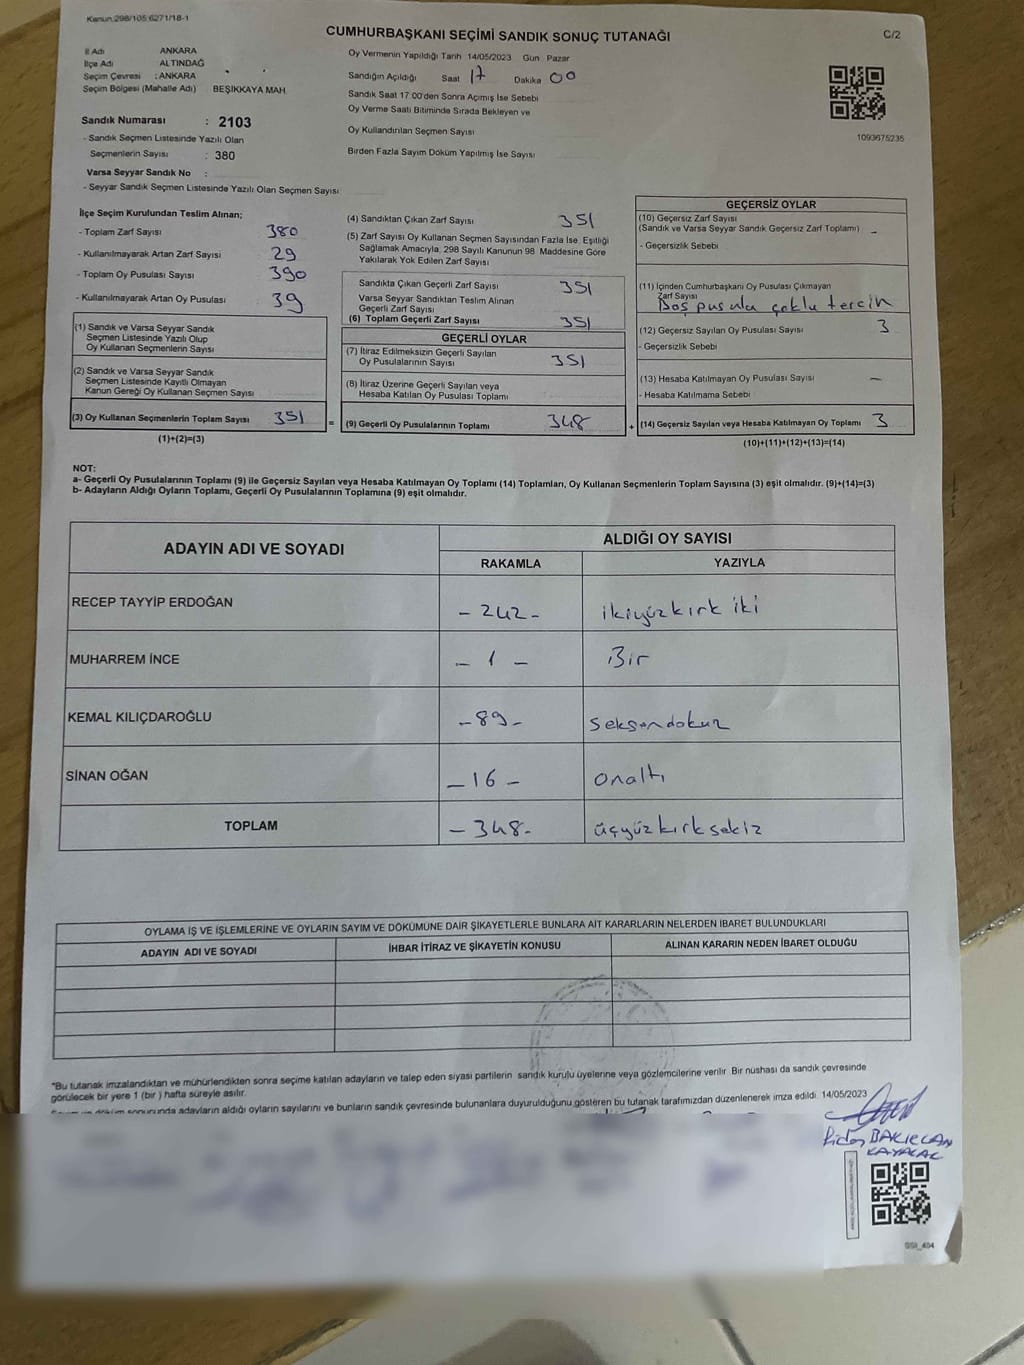 Kanun:298/105,6271/18-1
CUMHURBAŞKANI SEÇİMİ SANDIK SONUÇ TUTANAĞI
C/2
İl Adı ANKARA
İlçe Adı ALTINDAĞ
Seçim Çevresi : ANKARA
Seçim Bölgesi (Mahalle Adı) BEŞİKKAYA MAH.
Sandık Numarası : 2103
- Sandık Seçmen Listesinde Yazılı Olan
Seçmenlerin Sayısı : 380
Varsa Seyyar Sandık No :
- Seyyar Sandık Seçmen Listesinde Yazılı Olan Seçmen Sayısı
Oy Vermenin Yapıldığı Tarih 14/05/2023 Gün Pazar
Sandığın Açıldığı Saat 17 Dakika 00
Sandık Saat 17:00'den Sonra Açımış İse Sebebi
Oy Verme Saati Bitiminde Sırada Bekleyen ve
Oy Kullandırılan Seçmen Sayısı
Birden Fazla Sayım Döküm Yapılmış İse Sayısı
1093675235
İlçe Seçim Kurulundan Teslim Alınan;
- Toplam Zarf Sayısı 380
- Kullanılmayarak Artan Zarf Sayısı 29
- Toplam Oy Pusulası Sayısı 390
- Kullanılmayarak Artan Oy Pusulası 39
(1) Sandık ve Varsa Seyyar Sandık
Seçmen Listesinde Yazılı Olup
Oy Kullanan Seçmenlerin Sayısı
(2) Sandık ve Varsa Seyyar Sandık
Seçmen Listesinde Kayıtlı Olmayan
Kanun Gereği Oy Kullanan Seçmen Sayısı
(3) Oy Kullanan Seçmenlerin Toplam Sayısı 351
(1)+(2)=(3)
(4) Sandıktan Çıkan Zarf Sayısı 351
(5) Zarf Sayısı Oy Kullanan Seçmen Sayısından Fazla İse, Eşitliği
Sağlamak Amacıyla, 298 Sayılı Kanunun 98 Maddesine Göre
Yakılarak Yok Edilen Zarf Sayısı
Sandıkta Çıkan Geçerli Zarf Sayısı 351
Varsa Seyyar Sandıktan Teslim Alınan
Geçerli Zarf Sayısı
(6) Toplam Geçerli Zarf Sayısı 351
GEÇERLİ OYLAR
(7) İtiraz Edilmeksizin Geçerli Sayılan
Oy Pusulalarının Sayısı 351
(8) İtiraz Üzerine Geçerli Sayılan veya
Hesaba Katılan Oy Pusulası Toplamı
= (9) Geçerli Oy Pusulalarının Toplamı 348
GEÇERSİZ OYLAR
(10) Geçersiz Zarf Sayısı
(Sandık ve Varsa Seyyar Sandık Geçersiz Zarf Toplamı) -
- Geçersizlik Sebebi
(11) İçinden Cumhurbaşkanı Oy Pusulası Çıkmayan
Zarf Sayısı
Boş pusula çoklu tercih
(12) Geçersiz Sayılan Oy Pusulası Sayısı 3
- Geçersizlik Sebebi
(13) Hesaba Katılmayan Oy Pusulası Sayısı -
- Hesaba Katılmama Sebebi
+ (14) Geçersiz Sayılan veya Hesaba Katılmayan Oy Toplamı 3
(10)+(11)+(12)+(13)=(14)
NOT:
a- Geçerli Oy Pusulalarının Toplamı (9) ile Geçersiz Sayılan veya Hesaba Katılmayan Oy Toplamı (14) Toplamları, Oy Kullanan Seçmenlerin Toplam Sayısına (3) eşit olmalıdır. (9)+(14)=(3)
b- Adayların Aldığı Oyların Toplamı, Geçerli Oy Pusulalarının Toplamına (9) eşit olmalıdır.
ADAYIN ADI VE SOYADI
ALDIĞI OY SAYISI
RAKAMLA YAZIYLA
RECEP TAYYİP ERDOĞAN - 242 - ikiyüzkırk iki
MUHARREM İNCE - 1 - Bir
KEMAL KILIÇDAROĞLU - 89 - seksendokuz
SİNAN OĞAN - 16 - onaltı
TOPLAM - 348 - üçyüzkırksekiz
OYLAMA İŞ VE İŞLEMLERİNE VE OYLARIN SAYIM VE DÖKÜMÜNE DAİR ŞİKAYETLERLE BUNLARA AİT KARARLARIN NELERDEN İBARET BULUNDUKLARI
ADAYIN ADI VE SOYADI İHBAR İTİRAZ VE ŞİKAYETİN KONUSU ALINAN KARARIN NEDEN İBARET OLDUĞU
"Bu tutanak imzalandıktan ve mühürlendikten sonra seçime katılan adayların ve talep eden siyasi partilerin sandık kurulu üyelerine veya gözlemcilerine verilir. Bir nushası da sandık çevresinde
görülecek bir yere 1 (bir ) hafta süreyle asılır.
sonucunda adayların aldığı oyların sayılarını ve bunların sandık çevresinde bulunanlara duyurulduğunu gösteren bu tutanak tarafımızdan düzenlenerek imza edildi. 14/05/2023
BAKIRCAN